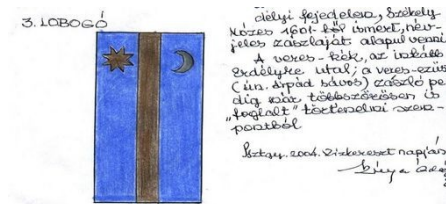 3. LOBOGÓ
délyi fejedelem, Székely-
Mózes 1601-ből ismert, név-
jeles zászlaját alapul venni
A veres-kék, az inkább
Erdélyre utal; a veres-ezüs
(ún. Árpád sávos) zászló pe
dig már többszörösen is
"foglalt" történelmi szem-
pontból.
Sztgy. 2004. Vízkereszt napján